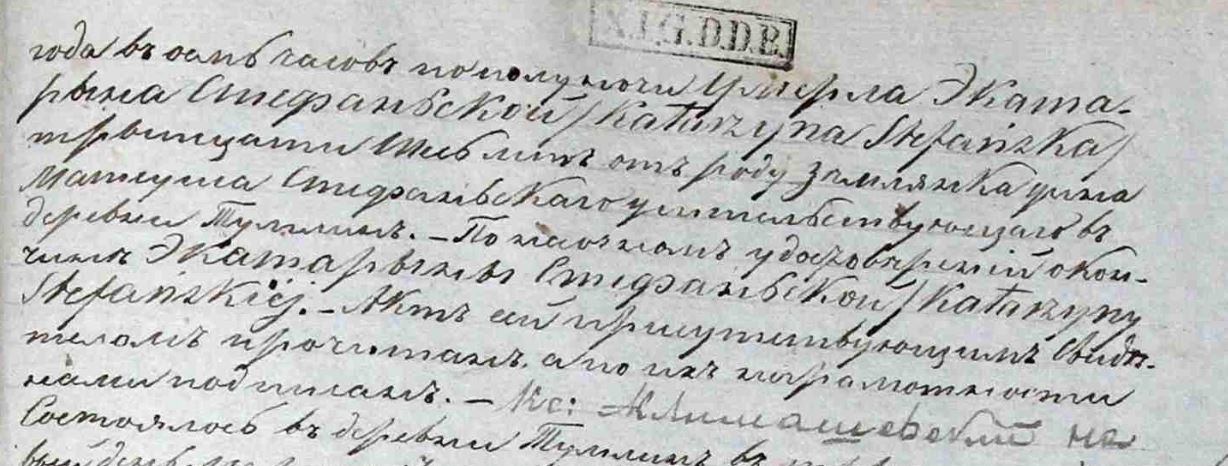 X.I.G.D.D.B.
года въ осмь часовъ по полуночи Умерла Эката-
рына Стефаньской /Katarzyna Stefańska/
трыцати лѣтъ отъ роду Землянка жена
Матеуша Стефаньскаго жительствующаго въ
деревни Тумлинъ. – По наочномъ удостовѣреній о кон-
чинѣ Экатарыны Стефаньской /Katarzyny
Stefańskiej. – Актъ сей присутствующимъ Свидѣ-
телямъ прочитанъ, а по ихъ неграмотности
нами подписанъ. – Кс: Климашевскій
Состоялось въ деревни Тумлинъ въ